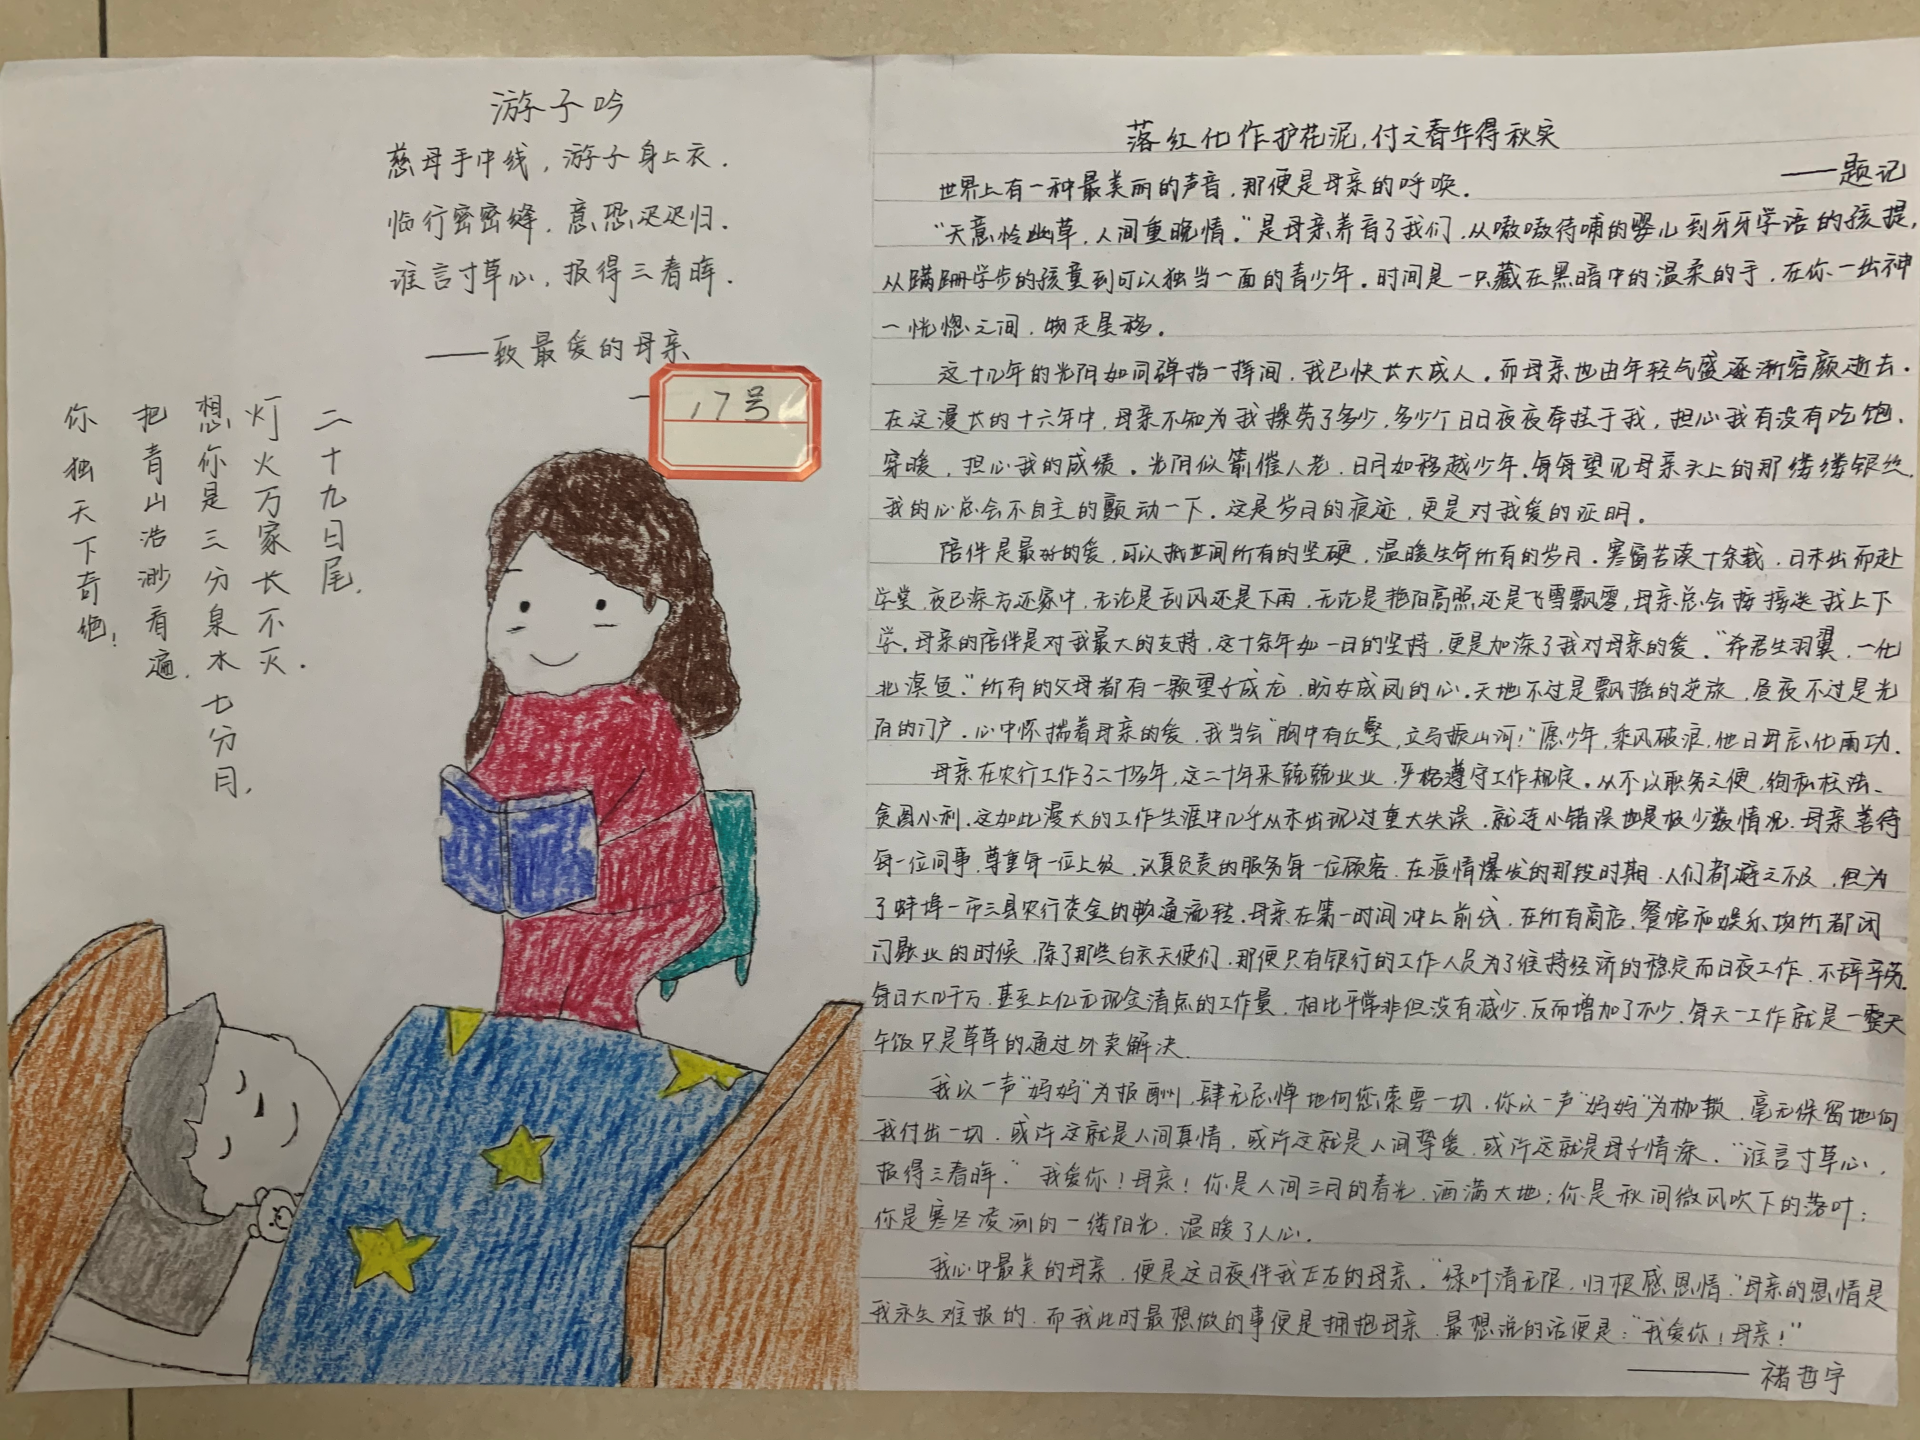 游子吟
慈母手中线，游子身上衣．
临行密密缝，意恐迟迟归．
谁言寸草心，报得三春晖．
——致最爱的母亲
17号
二十九日尾，
灯火万家长不灭．
想你是三分泉水七分月，
把青山浩渺看遍，
你独天下奇绝！
落红化作护花泥，付之春华得秋实
——题记
世界上有一种最美丽的声音，那便是母亲的呼唤．
“天意怜幽草，人间重晚情．”是母亲养育了我们，从嗷嗷待哺的婴儿到牙牙学语的孩提，
从蹒跚学步的孩童到可以独当一面的青少年．时间是一只藏在黑暗中的温柔的手，在你一出神
一恍惚之间，物走星移．
这十几年的光阴如同弹指一挥间，我已快长大成人．而母亲也由年轻气盛逐渐容颜逝去．
在这漫长的十六年中，母亲不知为我操劳了多少，多少个日日夜夜牵挂于我，担心我有没有吃饱、
穿暖，担心我的成绩．光阴似箭催人老，日月如移越少年．每每望见母亲头上的那缕缕银丝，
我的心总会不自主的颤动一下．这是岁月的痕迹，更是对我爱的证明．
陪伴是最好的爱，可以抵世间所有的坚硬，温暖生命所有的岁月．寒窗苦读十余载，日未出而赴
学堂，夜已深方还家中，无论是刮风还是下雨，无论是艳阳高照还是飞雪飘零，母亲总会接接送我上下
学．母亲的陪伴是对我最大的支持，这十余年如一日的坚持，更是加深了我对母亲的爱．“希君生羽翼，一化
北溟鱼．”所有的父母都有一颗望子成龙，盼女成凤的心．天地不过是飘摇的逆旅，昼夜不过是光
阴的门户．心中怀揣着母亲的爱，我当会“胸中有丘壑，立马振山河！”愿少年，乘风破浪，他日毋忘化雨功．
母亲在农行工作了二十多年，这二十年来兢兢业业，严格遵守工作规定．从不以职务之便，徇私枉法、
贪图小利．这如此漫长的工作生涯中几乎从未出现过重大失误，就连小错误也是极少数情况．母亲善待
每一位同事，尊重每一位上级，认真负责的服务每一位顾客．在疫情爆发的那段时期，人们都避之不及，但为
了蚌埠一市三县农行资金的畅通流转，母亲在第一时间冲上前线，在所有商店、餐馆和娱乐场所都闭
门歇业的时候，除了那些白衣天使们，那便只有银行的工作人员为了维持经济的稳定而日夜工作，不辞辛劳．
每日大几千万，甚至上亿元现金清点的工作量，相比平常非但没有减少，反而增加了不少，每天一工作就是一整天
午饭只是草草的通过外卖解决．
我以一声“妈妈”为报酬，肆无忌惮地向您索要一切，你以一声“妈妈”为枷锁，毫无保留地向
我付出一切．或许这就是人间真情，或许这就是人间挚爱，或许这就是母子情深．“谁言寸草心，
报得三春晖．”我爱你！母亲！你是人间三月的春光，洒满大地；你是秋间微风吹下的落叶；
你是寒冬凌冽的一缕阳光，温暖了人心．
我心中最美的母亲，便是这日夜伴我左右的母亲．“绿叶清无限，归根感恩情．”母亲的恩情是
我永生难报的．而我此时最想做的事便是拥抱母亲，最想说的话便是：“我爱你！母亲！”
——褚哲宇